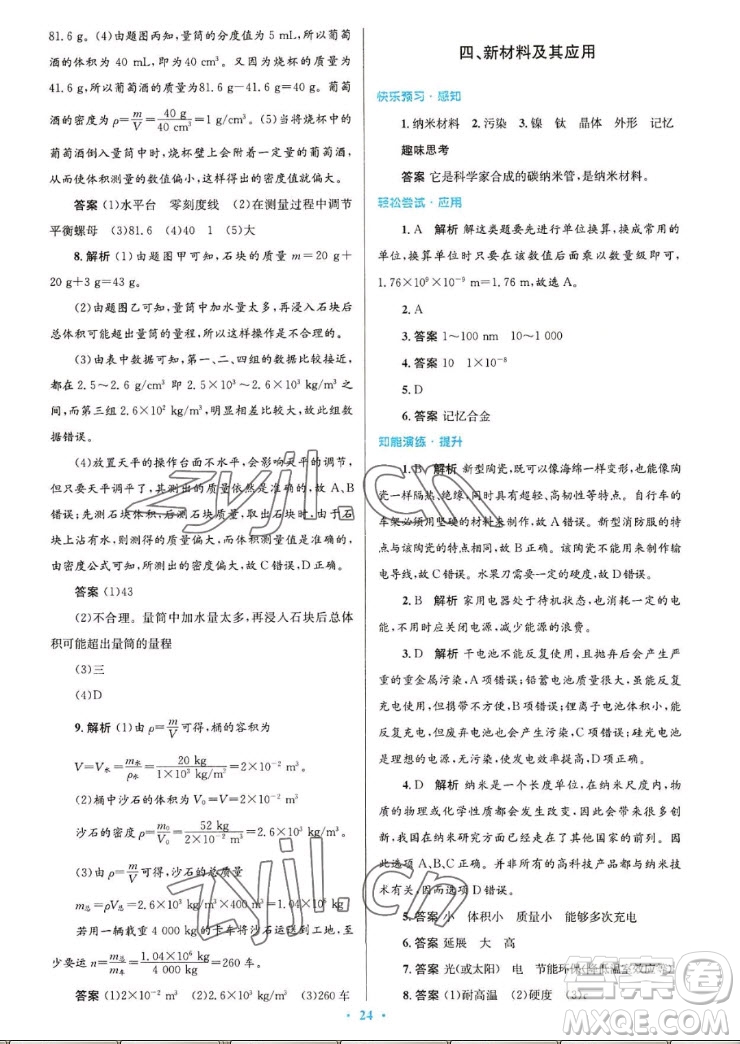 81.6 g。(4)由题图丙可知，量筒的分度值为 5 mL，所以葡萄
酒的体积为 40 mL，即为 40 cm³。又因为空烧杯的质量为
41.6 g，所以葡萄酒的质量为81.6 g－41.6 g＝40 g，葡萄
酒的密度为 ρ＝m/V＝40 g/40 cm³＝1 g/cm³。(5)当将烧杯中的
葡萄酒倒入量筒中时，烧杯壁上会附着一定量的葡萄
酒，从而使体积测量的数值偏小，这样得出的密度值就偏大。
答案 (1)水平台 零刻度线 (2)在测量过程中调节
平衡螺母 (3)81.6 (4)40 1 (5)大
8. 解析 (1)由题图甲可知，石块的质量 m＝20 g＋
20 g＋3 g＝43 g。
(2)由题图乙可知，量筒中加水量太多，再浸入石块后
总体积可能超出量筒的量程，所以这样操作是不合理的。
(3)由表中数据可知，第一、二、四组的数据比较接近，
都在 2.5～2.6 g/cm³ 即 2.5×10³～2.6×10³ kg/m³，
而第三组 2.6×10² kg/m³，明显和其他有差异，故此组数
据错误。
(4)放置天平的操作台面不水平，会影响测量结果，但
只要天平调平了，其测出的质量仍然是准确的，故 A、B
错误；先测石块体积，后测石块质量，取出石块时，由于石
块上沾有水，则导致测出的质量偏大，体积是准确的，由
密度公式可知，所测出的密度偏大，故 C 错误，D 正确。
答案 (1)43
(2)不合理。量筒中加水量太多，再浸入石块后总体
积可能超出量筒的量程
(3)三
(4)D
9. 解析 (1)由 ρ＝m/V可得，桶的容积为
V＝V水＝m水/ρ水＝20 kg/1×10³ kg/m³＝2×10⁻² m³。
(2)桶中沙石的体积为 V₀＝V＝2×10⁻² m³
沙石的密度 ρ＝m₀/V₀＝52 kg/2×10⁻² m³＝2.6×10³ kg/m³。
(3)由 ρ＝m/V可得，沙石的总质量为
m总＝ρV总＝2.6×10³ kg/m³×400 m³＝1.04×10⁶ kg
若用一辆载重 4 000 kg的卡车将沙石运送到工地，至
少要运 n＝m总/m车＝1.04×10⁶ kg/4 000 kg＝260 车。
答案 (1)2×10⁻² m³ (2)2.6×10³ kg/m³ (3)260 车
四、新材料及其应用
快乐预习·感知
1. 纳米材料 2. 污染 3. 镍 钛 晶体 外形 记忆
趣味思考
答案 它是科学家合成的碳纳米管，是纳米材料。
轻松尝试·应用
1. A 解析 解这类题要先进行单位换算，换成常用的
单位，换算单位时只要在该数值后面乘以数量级即可，
1.76×10⁹×10⁻⁹ m＝1.76 m，故选 A。
2. A
3. 答案 1～100 nm 10～1 000
4. 答案 10 1×10⁻⁸
5. D
6. 答案 记忆合金
知能演练·提升
1. B 解析 新型陶瓷，可以像海绵一样变形，也能像陶
瓷一样隔热、绝缘，同时具有超轻、高韧性等特点。自行车的
车架必须用坚硬的材料来制作，故 A 错误。新型消防服的特点
与该陶瓷的特点相同，故 B 正确。该陶瓷不能用来制作输
电导线，故 C 错误。水果刀需要坚硬的材料，故 D 错误。
2. B 解析 家用电器处于待机状态，也会消耗一定的电
能，不用时应关闭电源，减少能源的浪费。
3. D 解析 干电池不能反复使用，丢弃后会产生严
重的重金属污染，A 项错误；铅蓄电池体积大、质量大，虽能
反复充电使用，但丢弃后会污染环境，B 项错误；锂离子电池体积小，
可反复充电使用，但电池也会产生污染，C 项错误；硅光电池
能够将太阳能转化为电能，无污染，符合节能和环保的要
求，D 项正确。
4. D 解析 纳米是一个长度单位，在纳米尺度下，物
质的物理或化学性质都会发生改变，从而带来很多创
新，我国在纳米研究方面已走在了其他国家的前列。因
此选项 A、B、C 正确。并非所有的高科技产品都与纳米技
术有关，因而选项 D 错误。
5. 答案 小 体积小 质量小 能够多次充电
6. 答案 延展 大 高
7. 答案 光(或太阳) 电 节能环保(降低温室效应等)
8. 答案 (1)耐高温 (2)硬度
24
zyjl.cn
zyjl.cn
答案圈